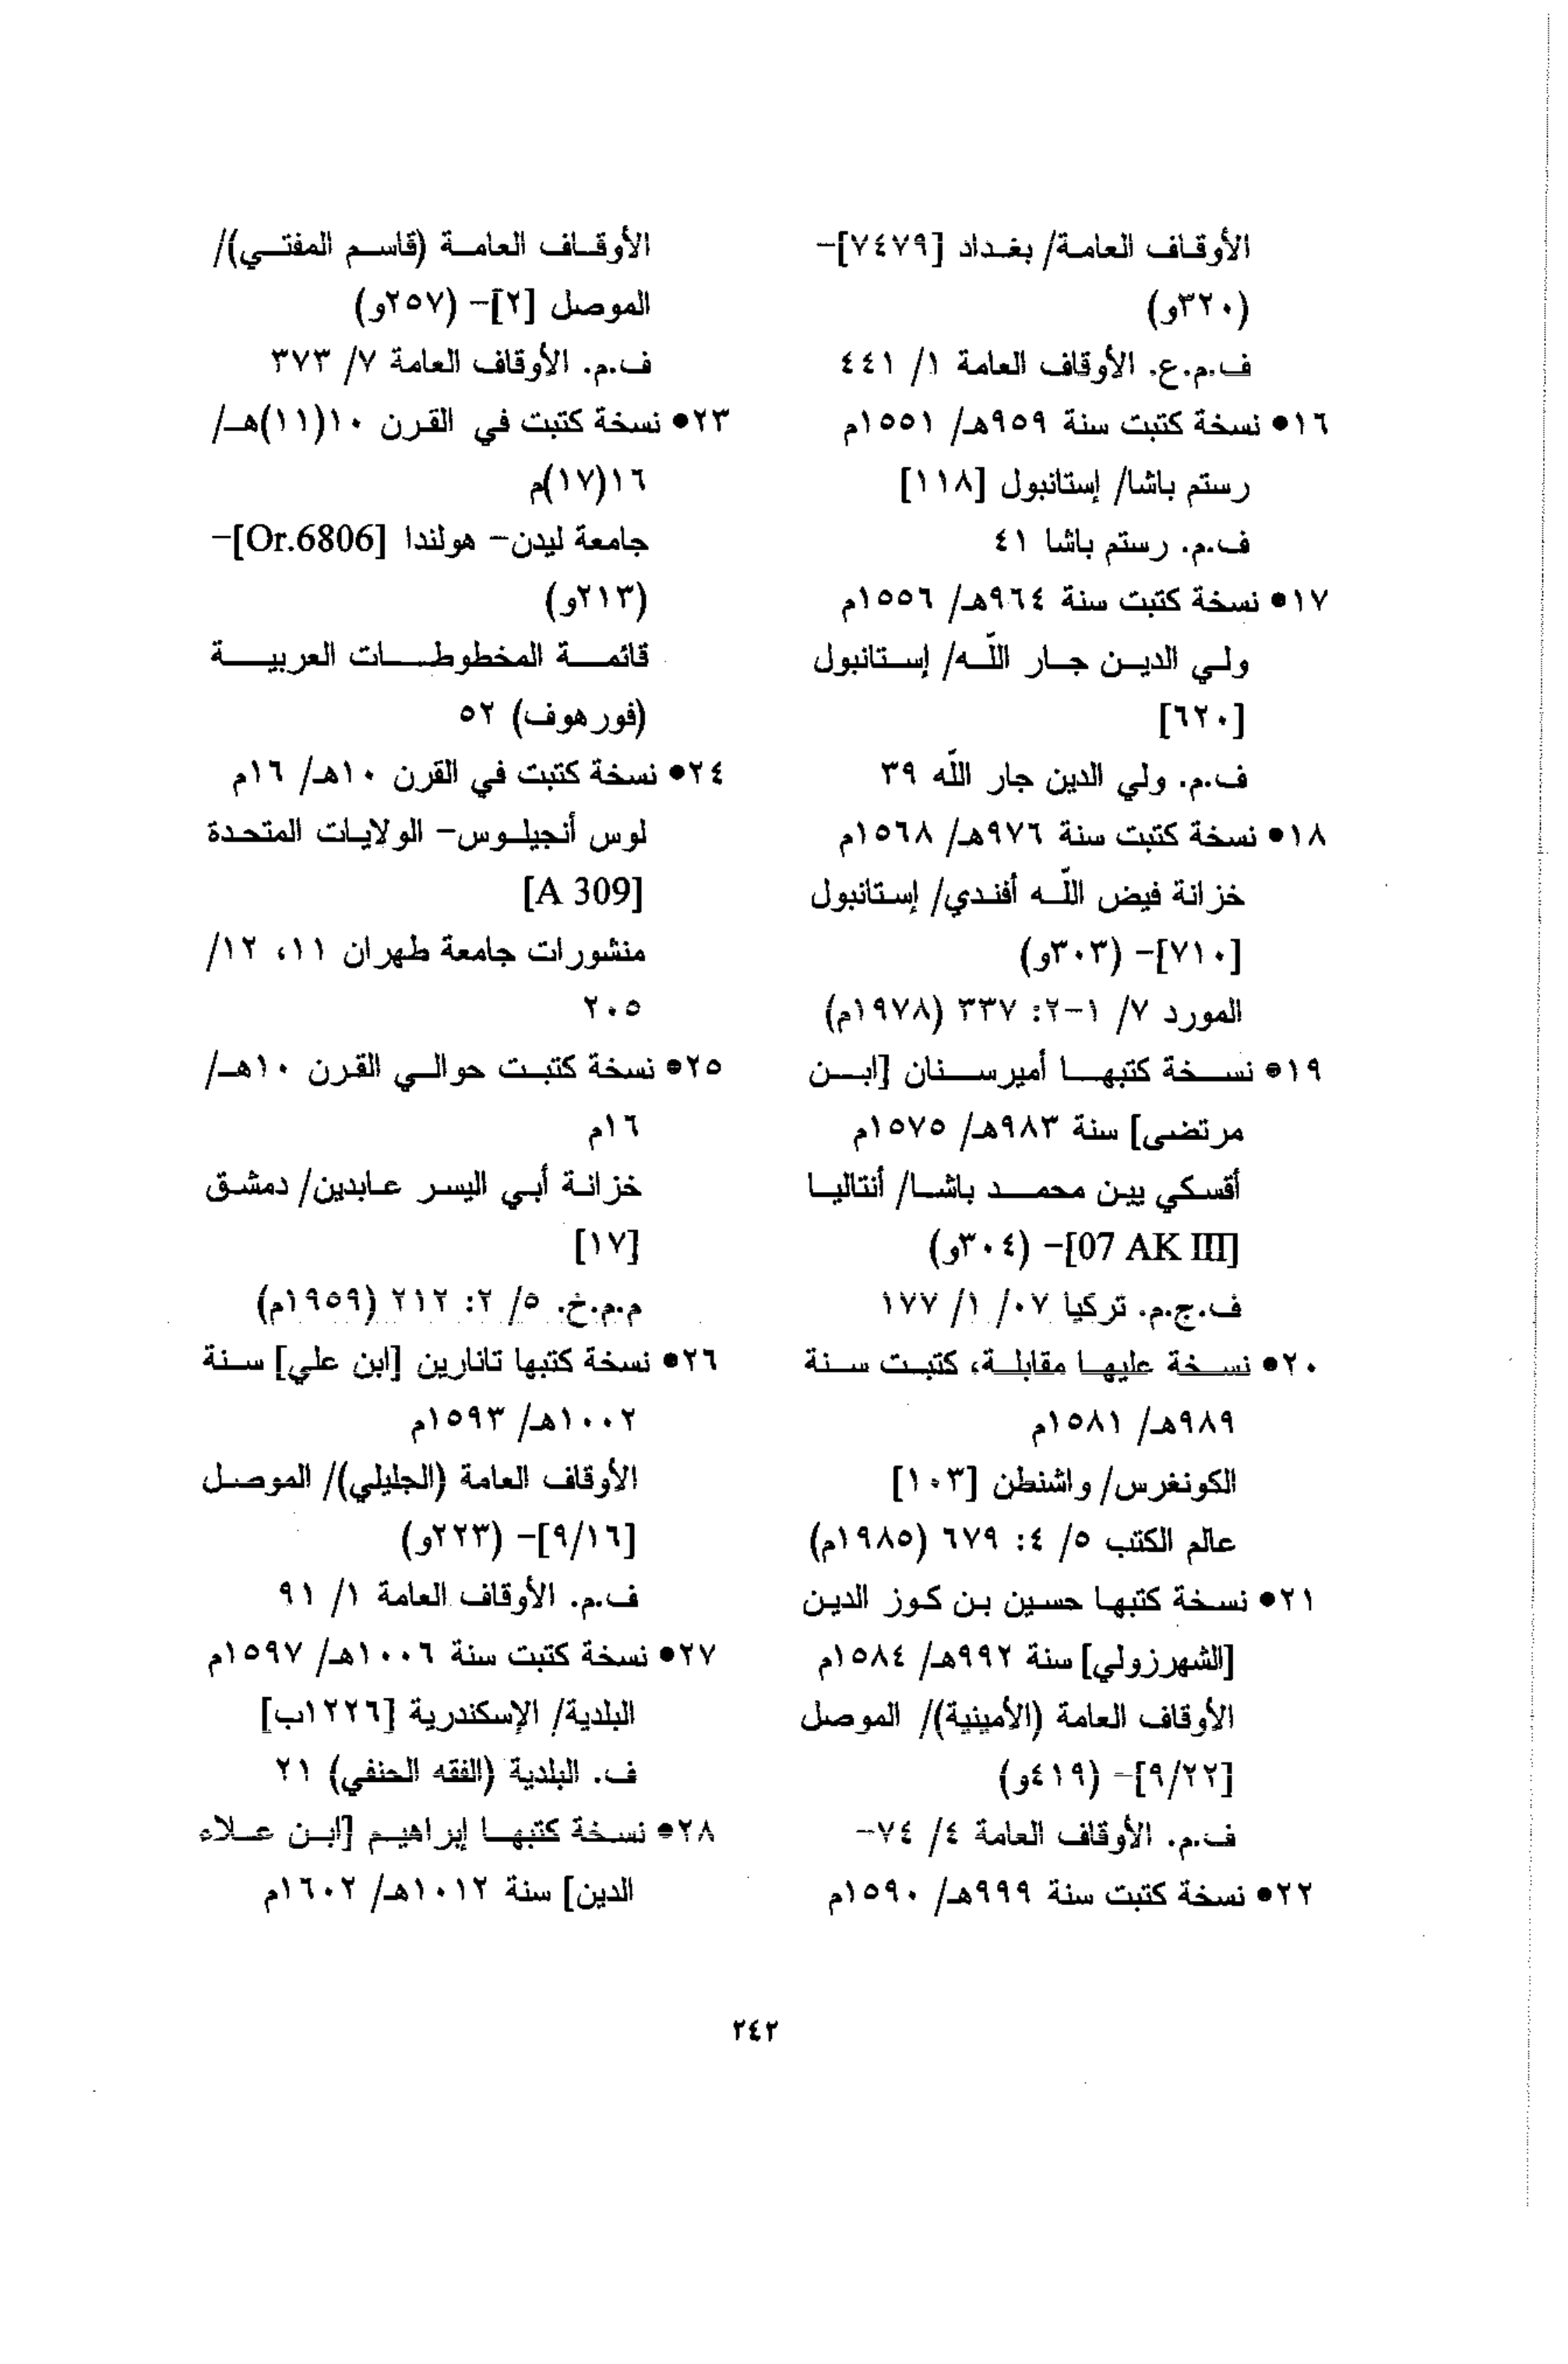 الأوقاف العامة/ بغداد [٧٤٧٩]-
(٣٢٠و)
ف.م.ع. الأوقاف العامة ١/ ٤٤١
١٦• نسخة كتبت سنة ٩٥٩هـ/ ١٥٥١م
رستم باشا/ إستانبول [١١٨]
ف.م. رستم باشا ٤١
١٧• نسخة كتبت سنة ٩٦٤هـ/ ١٥٥٦م
ولي الدين جار اللّه/ إستانبول
[٦٢٠]
ف.م. ولي الدين جار اللّه ٣٩
١٨• نسخة كتبت سنة ٩٧٦هـ/ ١٥٦٨م
خزانة فيض اللّه أفندي/ إستانبول
[٧١٠]- (٣٠٣و)
المورد ٧/ ١-٢: ٣٣٧ (١٩٧٨م)
١٩• نسخة كتبها أميرسنان [ابن
مرتضى] سنة ٩٨٣هـ/ ١٥٧٥م
أقسكي يين محمد باشا/ أنتاليا
[07 AK III]- (٣٠٤و)
ف.ج.م. تركيا ٠٧/ ١/ ١٧٧
٢٠• نسخة عليها مقابلة، كتبت سنة
٩٨٩هـ/ ١٥٨١م
الكونغرس/ واشنطن [١٠٣]
عالم الكتب ٥/ ٤: ٦٧٩ (١٩٨٥م)
٢١• نسخة كتبها حسين بن كوز الدين
[الشهرزولي] سنة ٩٩٢هـ/ ١٥٨٤م
الأوقاف العامة (الأمينية)/ الموصل
[٩/٢٢]- (٤١٩و)
ف.م. الأوقاف العامة ٤/ ٧٤-
٢٢• نسخة كتبت سنة ٩٩٩هـ/ ١٥٩٠م
الأوقاف العامة (قاسم المفتي)/
الموصل [٢]- (٢٥٧و)
ف.م. الأوقاف العامة ٧/ ٣٧٣
٢٣• نسخة كتبت في القرن ١٠(١١)هـ/
١٦(١٧)م
جامعة ليدن- هولندا [Or.6806]-
(٢١٣و)
قائمة المخطوطات العربية
(فورهوف) ٥٢
٢٤• نسخة كتبت في القرن ١٠هـ/ ١٦م
لوس أنجيلوس- الولايات المتحدة
[A 309]
منشورات جامعة طهران ١١، ١٢/
٢٠٥
٢٥• نسخة كتبت حوالي القرن ١٠هـ/
١٦م
خزانة أبي اليسر عابدين/ دمشق
[١٧]
م.م.خ. ٥/ ٢: ٢١٢ (١٩٥٩م)
٢٦• نسخة كتبها تانارين [ابن علي] سنة
١٠٠٢هـ/ ١٥٩٣م
الأوقاف العامة (الجليلي)/ الموصل
[٩/١٦]- (٢٢٣و)
ف.م. الأوقاف العامة ١/ ٩١
٢٧• نسخة كتبت سنة ١٠٠٦هـ/ ١٥٩٧م
البلدية/ الإسكندرية [١٢٢٦ب]
ف. البلدية (الفقه الحنفي) ٢١
٢٨• نسخة كتبها إبراهيم [ابن علاء
الدين] سنة ١٠١٢هـ/ ١٦٠٢م
٢٤٢